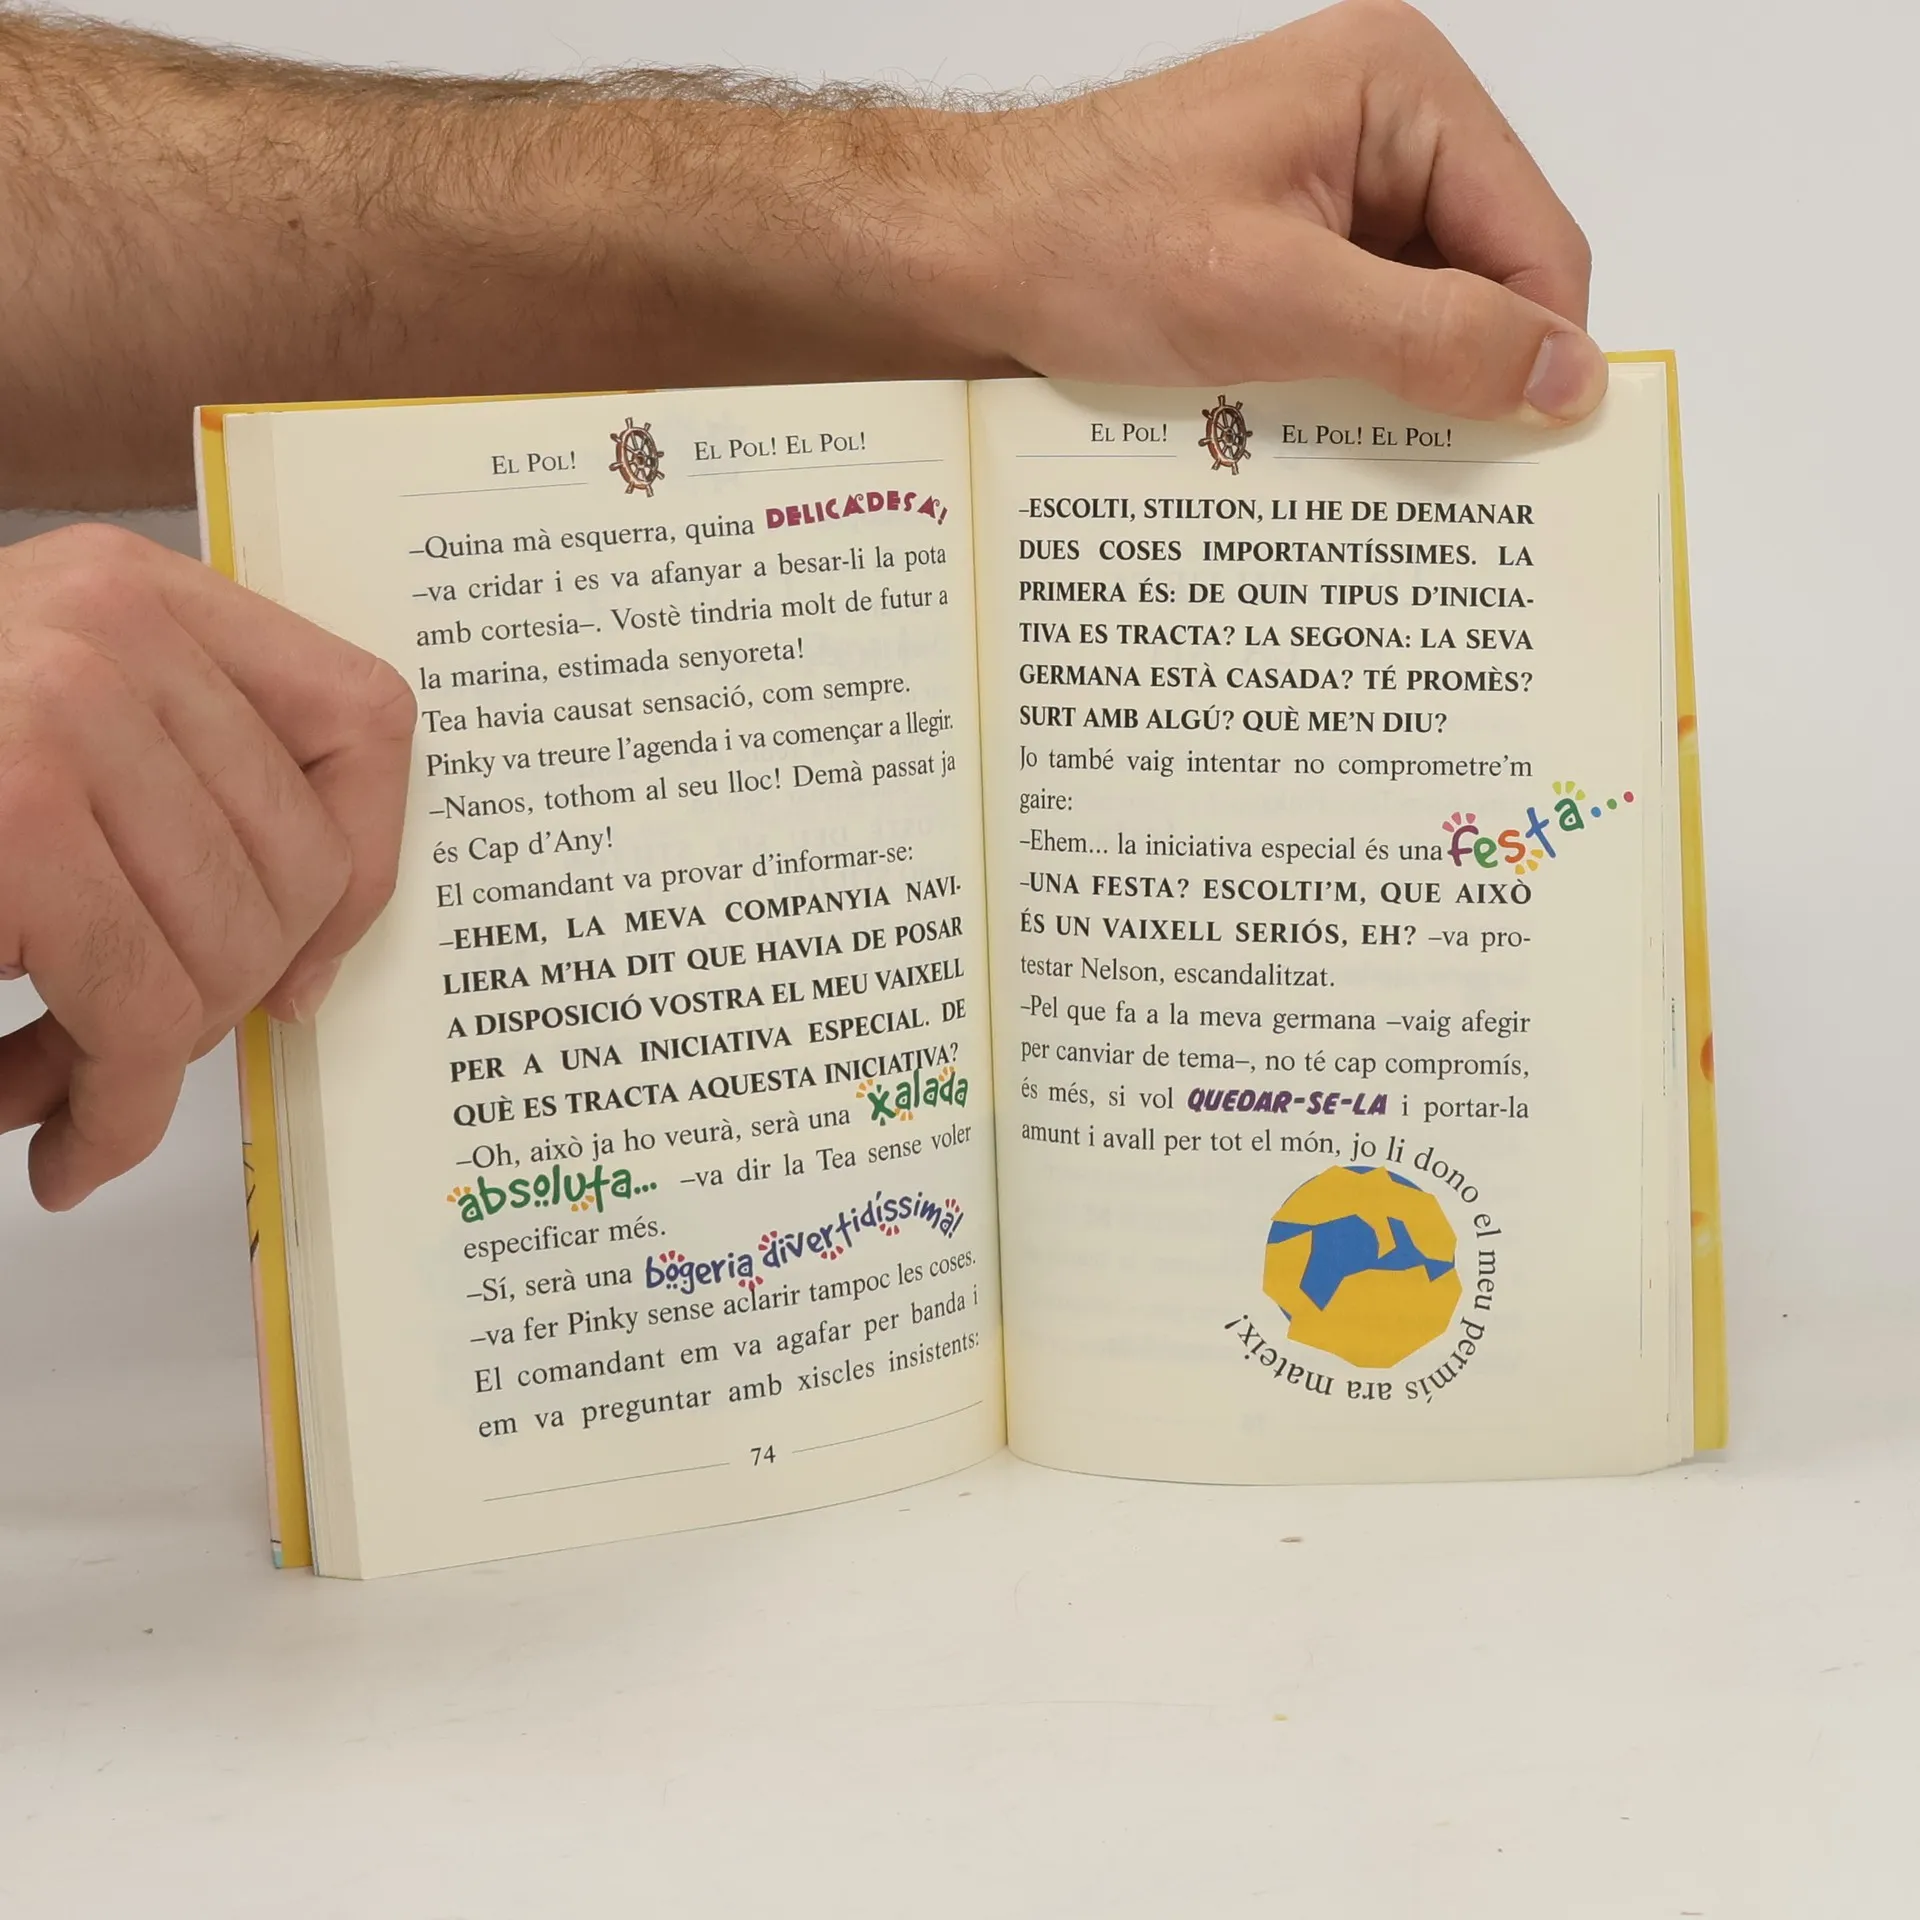 EL POL! EL POL! EL POL!
–Quina mà esquerra, quina DELICADESA!
–va cridar i es va afanyar a besar-li la pota
amb cortesia–. Vostè tindria molt de futur a
la marina, estimada senyoreta!
Tea havia causat sensació, com sempre.
Pinky va treure l’agenda i va començar a llegir.
–Nanos, tothom al seu lloc! Demà passat ja
és Cap d’Any!
El comandant va provar d’informar-se:
–EHEM, LA MEVA COMPANYIA NAVI-
LIERA M’HA DIT QUE HAVIA DE POSAR
A DISPOSICIÓ VOSTRA EL MEU VAIXELL
PER A UNA INICIATIVA ESPECIAL. DE
QUÈ ES TRACTA AQUESTA INICIATIVA?
–Oh, això ja ho veurà, serà una xalada
absoluta... –va dir la Tea sense voler
especificar més.
–Sí, serà una bogeria divertidíssima!
–va fer Pinky sense aclarir tampoc les coses.
El comandant em va agafar per banda i
em va preguntar amb xiscles insistents:
74
EL POL! EL POL! EL POL!
–ESCOLTI, STILTON, LI HE DE DEMANAR
DUES COSES IMPORTANTÍSSIMES. LA
PRIMERA ÉS: DE QUIN TIPUS D’INICIA-
TIVA ES TRACTA? LA SEGONA: LA SEVA
GERMANA ESTÀ CASADA? TÉ PROMÈS?
SURT AMB ALGÚ? QUÈ ME’N DIU?
Jo també vaig intentar no comprometre’m
gaire:
–Ehem... la iniciativa especial és una festa...
–UNA FESTA? ESCOLTI’M, QUE AIXÒ
ÉS UN VAIXELL SERIÓS, EH? –va pro-
testar Nelson, escandalitzat.
–Pel que fa a la meva germana –vaig afegir
per canviar de tema–, no té cap compromís,
és més, si vol QUEDAR-SE-LA i portar-la
amunt i avall per tot el món, jo li dono el meu permís ara mateix!